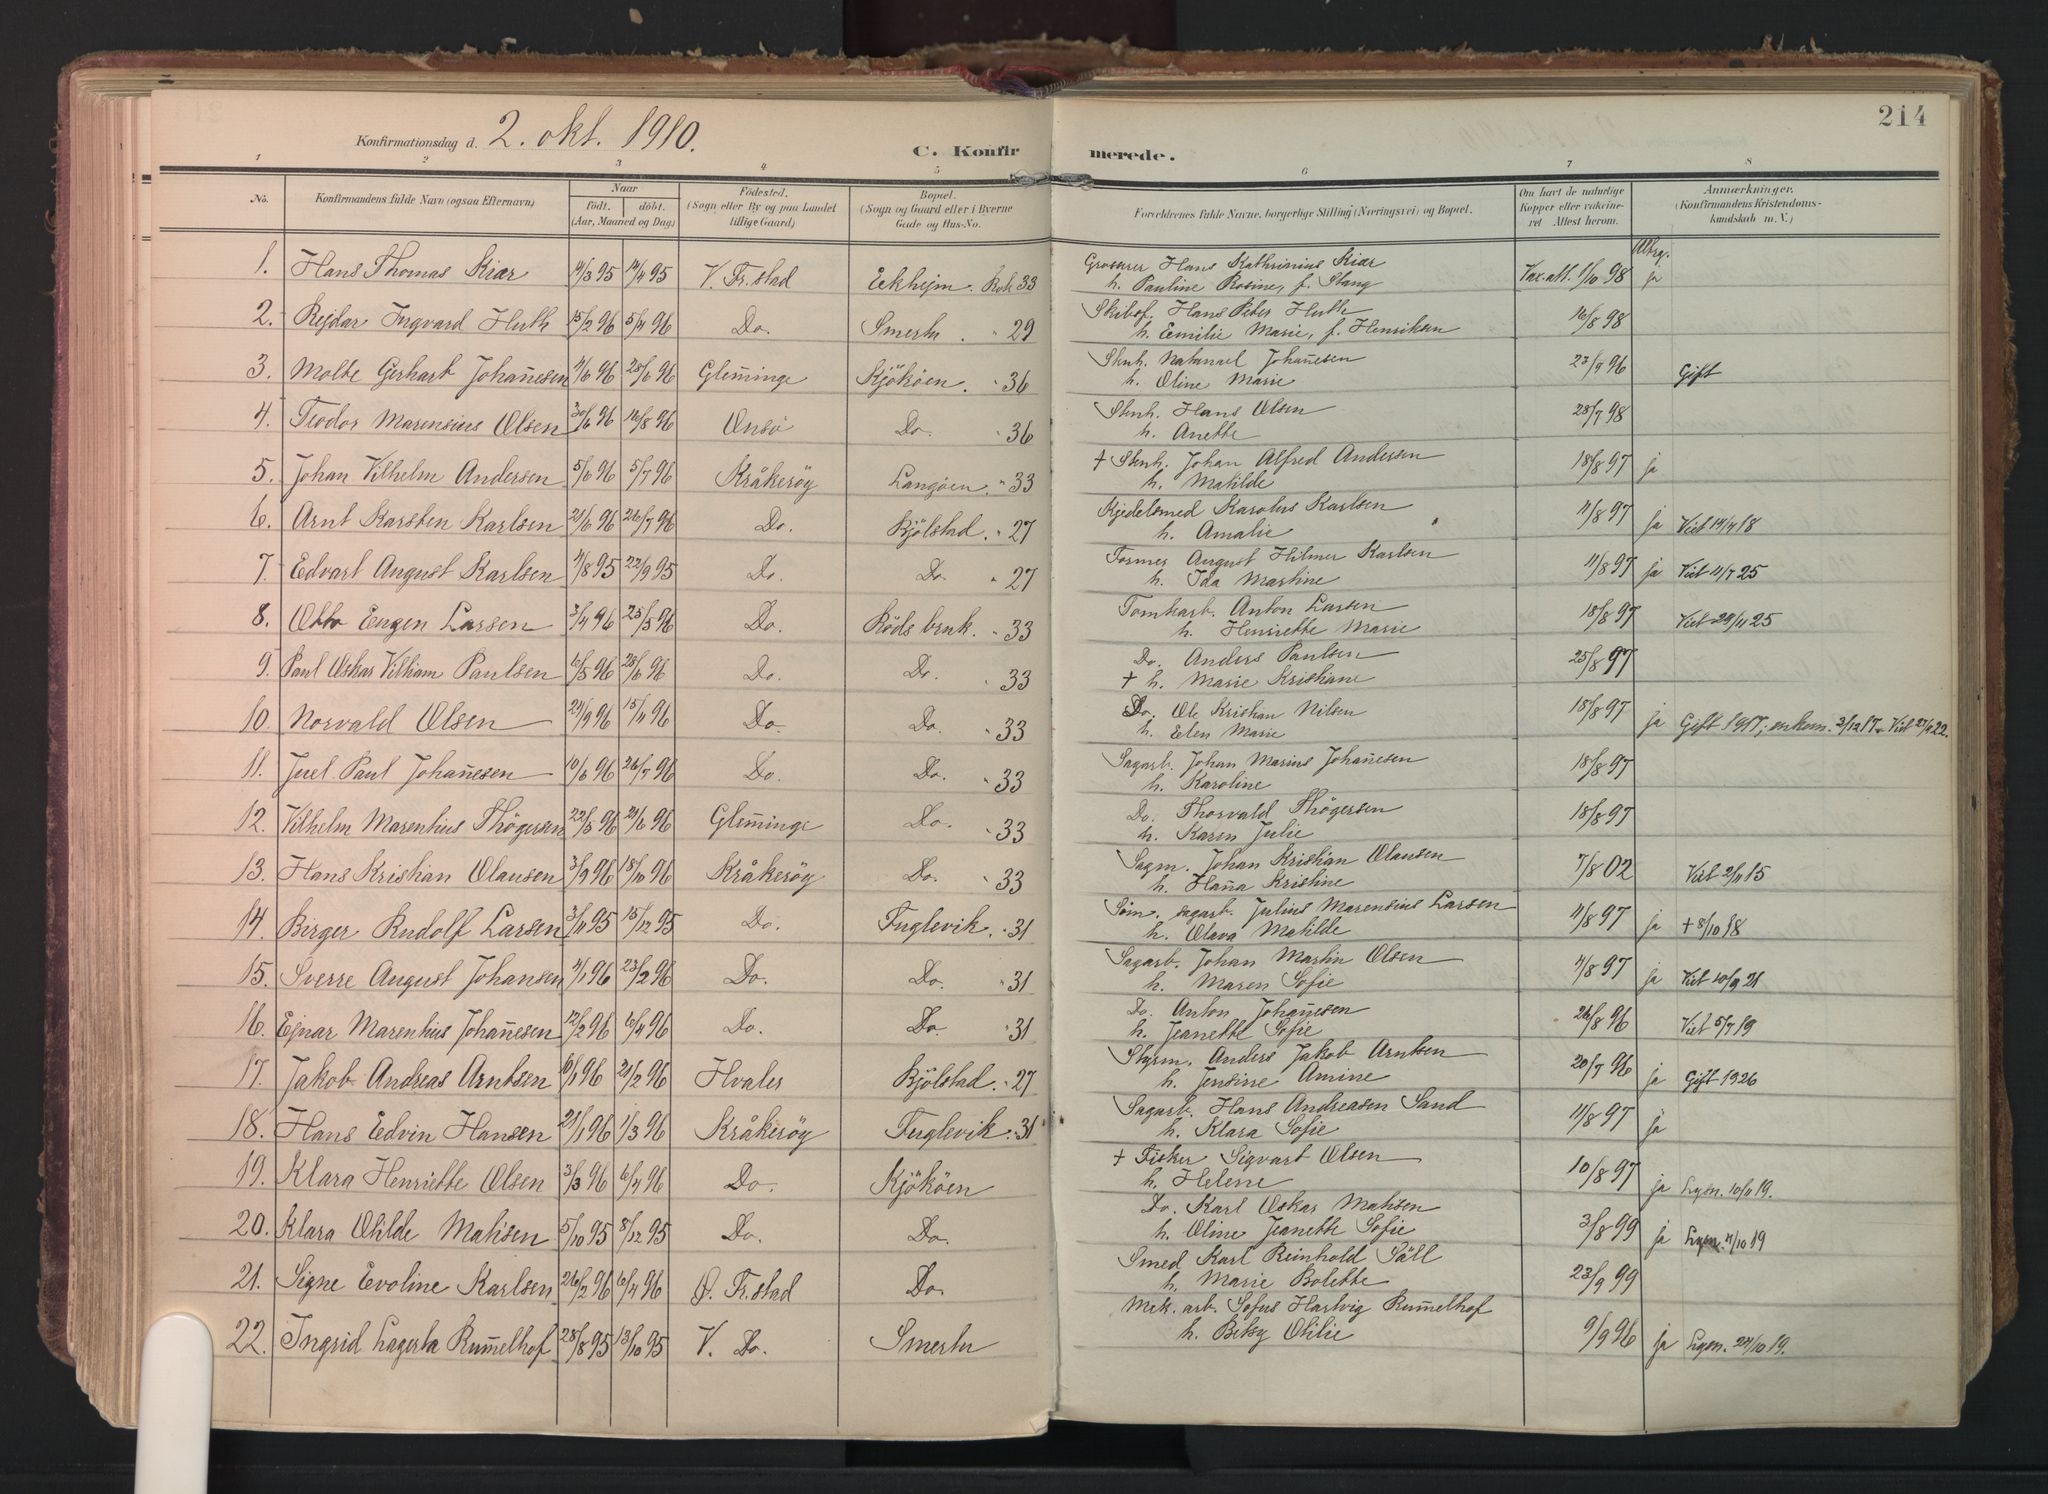 214
Konfirmationsdag d. 2. okt. 1910.
C. Konfirmerede.
1 2 3 4 5 6 7 8
No. Konfirmandens fulde Navn (ogsaa Efternavn) Naar født. døbt. (Aar, Maaned og Dag) Fødested. (Sogn eller By og paa Landet tillige Gaard) Bopæl. (Sogn og Gaard eller i Byerne Gade og Hus-No. Forældrenes fulde Navne, borgerlige Stilling (Næringsvei) og Bopæl. Om havt de naturlige Kopper eller vakcineret Attest herom. Anmærkninger. (Konfirmandens Kristendomskundskab m. V.)
1. Hans Thomas Kiær 14/3 95 14/4 95 V. Fr.stad Ekhejm. 33 Grosserer Hans Kathrinius Kiær Vax. att. 1/10 98 ja
h. Pauline Rosine, f. Stang
2. Rejdar Ingvard Huth 15/2 96 5/4 96 Do. Smertu. " 29 Skibsf. Hans Peter Huth 16/8 98
h. Emilie Marie, f. Henriksen
3. Molte Gerhart Johan̄esen 4/6 96 28/6 96 Glem̄inge Kjøkøen. " 36 Stenh. Natanael Johan̄esen 23/9 96 Gift
h. Oline Marie
4. Teodor Marensius Olsen 30/6 96 16/8 96 Onsø Do. " 36 Stenh. Hans Olsen 28/7 98
h. Anette
5. Johan Vilhelm Andersen 5/6 96 5/7 96 Kråkerøy Langøen. " 33 + Stenh. Johan Alfred Andersen 18/8 97 ja
h. Matilde
6. Arnt Karsten Karlsen 21/6 96 26/7 96 Do. Bjølstad. " 27 Kjedelsmed Karolus Karlsen 11/8 97 ja Viet 14/4 18
h. Amalie
7. Edvart August Karlsen 4/8 95 22/9 95 Do. Do. " 27 Former August Hilmer Karlsen 11/8 97 ja Viet 11/7 25
h. Ida Martine
8. Otto Eugen Larsen 3/4 96 25/5 96 Do. Røds bruk. " 33 Tomtearb. Anton Larsen 18/8 97 Viet 29/11 25
h. Henriette Marie
9. Paul Oskar Vilham Paulsen 16/5 96 28/6 96 Do. Do. " 33 Do. Anders Paulsen 25/8 97
+ h. Marie Kristiane
10. Norvald Olsen 24/9 96 15/11 96 Do. Do. " 33 Do. Ole Kristian Nilsen 18/8 97 ja Gift 1917; enkem. 3/12 17. Viet 27/9 22.
h. Elen Marie
11. Juel Paul Johan̄esen 10/6 96 26/7 96 Do. Do. " 33 Sagarb. Johan Marius Johan̄esen 18/8 97
h. Karoline
12. Vilhelm Marentius Thøgersen 22/5 96 21/6 96 Glem̄inge Do. " 33 Do. Thorvald Thøgersen 18/8 97
h. Karen Julie
13. Hans Kristian Olausen 3/9 96 18/10 96 Kråkerøy Do. " 33 Sagm. Johan Kristian Olausen 7/8 02 Viet 2/11 15
h. Han̄a Kristine
14. Birger Rudolf Larsen 3/11 95 15/12 95 Do. Fuglevik. " 31 Søm. sagarb. Julius Marensius Larsen 11/8 97 ja + 8/10 18
h. Olava Matilde
15. Sverre August Johansen 4/1 96 23/2 96 Do. Do. " 31 Sagarb. Johan Martin Olsen 4/8 97 ja Viet 10/9 21
h. Maren Sofie
16. Ejnar Marentius Johan̄esen 12/2 96 6/4 96 Do. Do. " 31 Do. Anton Johan̄esen 26/8 96 Viet 5/7 19
h. Jeanette Sofie
17. Jakob Andreas Arntsen 10/1 96 21/2 96 Hvaler Bjølstad. " 27 Styrm. Anders Jakob Arntsen 20/7 96 ja Gift 1926
h. Jensine Amine
18. Hans Edvin Hansen 21/1 96 1/3 96 Kråkerøy Fuglevik. " 31 Sagarb. Hans Andreasen Sand 11/8 97 ja
h. Klara Sofie
19. Klara Henriette Olsen 3/3 96 6/4 96 Do. Kjøkøen + Fisker Sigvart Olsen 10/8 97 ja Lysn. 10/11 19.
h. Helene
20. Klara Otilde Matisen 5/10 95 8/12 95 Do. Do. Do. Karl Oskar Matisen 3/8 99 ja Lysn. 4/10 19
h. Oline Jeanette Sofie
21. Signe Evoline Karlsen 26/2 96 6/4 96 Ø. Fr.stad Do. Smed Karl Reinhold Säll 23/9 99
h. Marie Bolette
22. Ingrid Lagerta Rum̄elhof 28/8 95 13/10 95 V. Do. Smertu Mek. arb. Sofus Hartvig Rum̄elhof 9/9 96 ja Lysn. 24/10 19.
h. Betsy Otilie